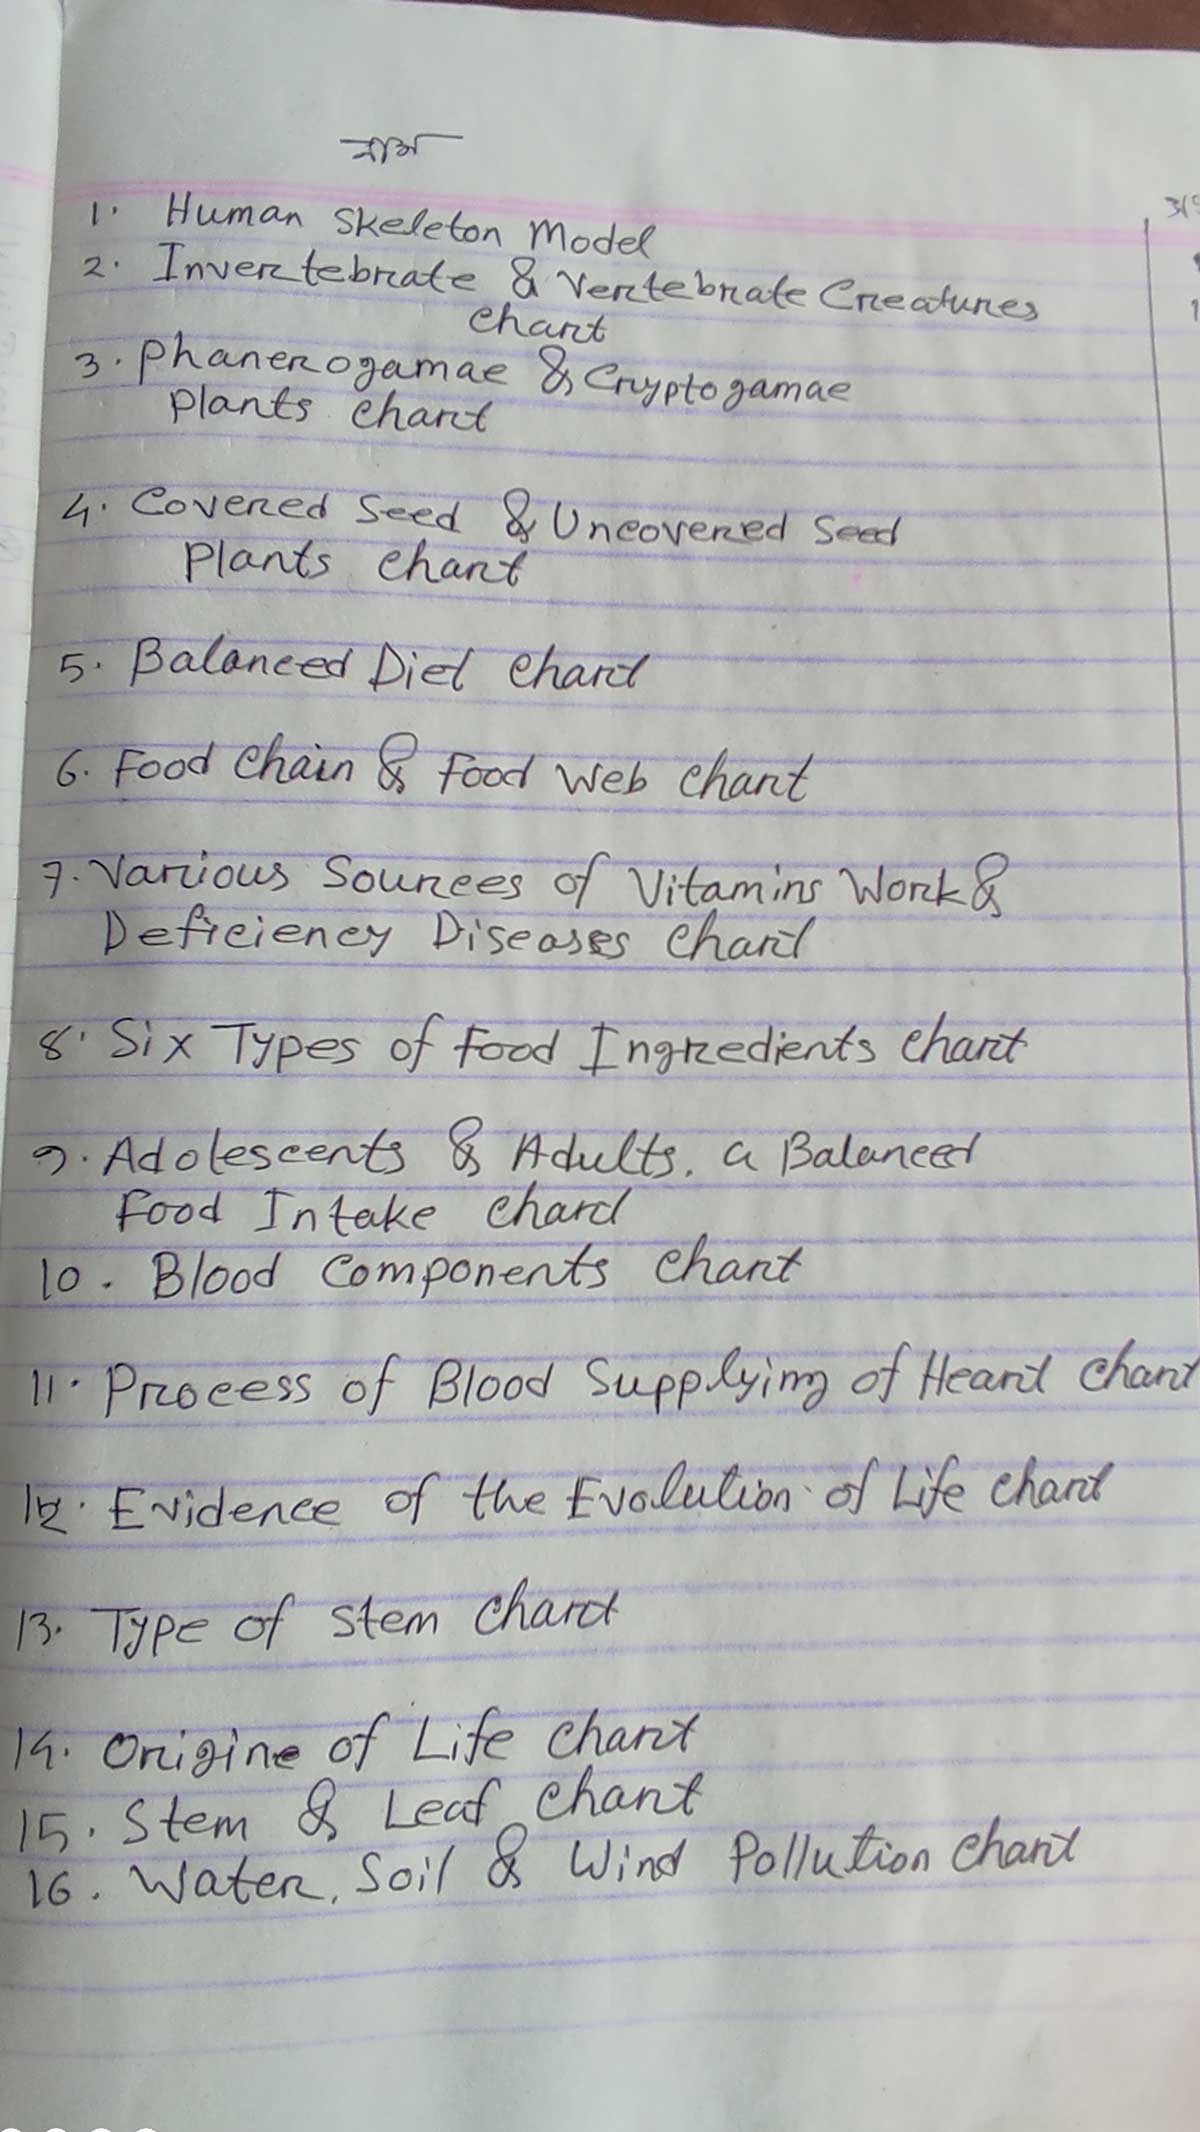 নাম
1. Human Skeleton Model
2. Invertebrate & Vertebrate Creatures
Chart
3. Phanerogamae & Cryptogamae
Plants Chart
4. Covered Seed & Uncovered Seed
Plants Chart
5. Balanced Diet Chart
6. Food Chain & Food Web Chart
7. Various Sources of Vitamins Work &
Deficiency Diseases Chart
8. Six Types of Food Ingredients Chart
9. Adolescents & Adults. a Balanced
Food Intake Chart
10. Blood Components Chart
11. Process of Blood Supplying of Heart Chart
12. Evidence of the Evolution of Life Chart
13. Type of Stem Chart
14. Origine of Life Chart
15. Stem & Leaf Chart
16. Water, Soil & Wind Pollution Chart